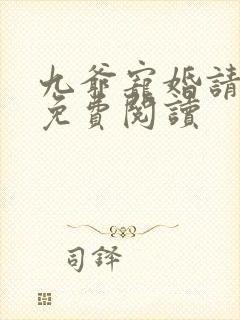 九爺寵婚請
免費閱讀
司鐸